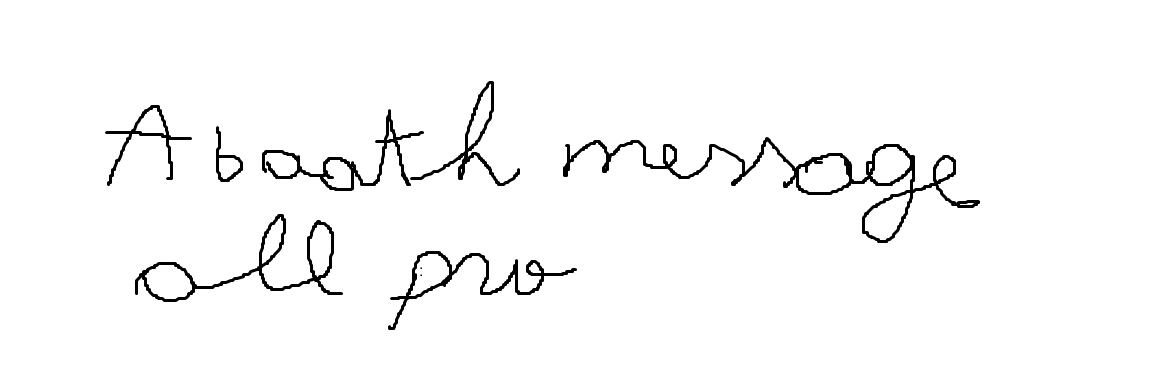 A baath message
all pro